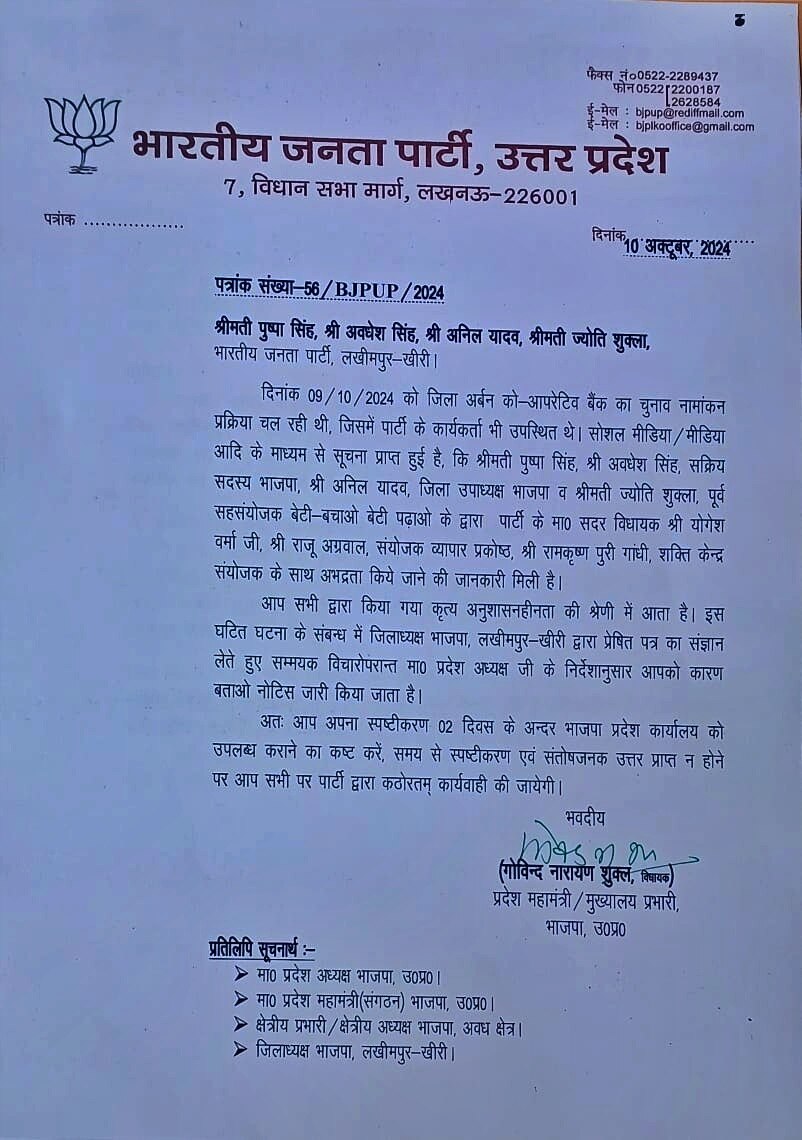 फैक्स नं०0522-2289437
फोन0522 2200187
2628584
ई-मेल : bjpup@rediffmail.com
ई-मेल : bjplkooffice@gmail.com
भारतीय जनता पार्टी, उत्तर प्रदेश
7, विधान सभा मार्ग, लखनऊ-226001
पत्रांक ..................
दिनांक 10 अक्टूबर, 2024
पत्रांक संख्या-56/BJPUP/2024
श्रीमती पुष्पा सिंह, श्री अवधेश सिंह, श्री अनिल यादव, श्रीमती ज्योति शुक्ला,
भारतीय जनता पार्टी, लखीमपुर-खीरी।
दिनांक 09/10/2024 को जिला अर्बन को-आपरेटिव बैंक का चुनाव नामांकन
प्रक्रिया चल रही थी, जिसमें पार्टी के कार्यकर्ता भी उपस्थित थे। सोशल मीडिया/मीडिया
आदि के माध्यम से सूचना प्राप्त हुई है, कि श्रीमती पुष्पा सिंह, श्री अवधेश सिंह, सक्रिय
सदस्य भाजपा, श्री अनिल यादव, जिला उपाध्यक्ष भाजपा व श्रीमती ज्योति शुक्ला, पूर्व
सहसंयोजक बेटी-बचाओ बेटी पढ़ाओ के द्वारा पार्टी के मा0 सदर विधायक श्री योगेश
वर्मा जी, श्री राजू अग्रवाल, संयोजक व्यापार प्रकोष्ठ, श्री रामकृष्ण पुरी गांधी, शक्ति केन्द्र
संयोजक के साथ अभद्रता किये जाने की जानकारी मिली है।
आप सभी द्वारा किया गया कृत्य अनुशासनहीनता की श्रेणी में आता है। इस
घटित घटना के संबन्ध में जिलाध्यक्ष भाजपा, लखीमपुर-खीरी द्वारा प्रेषित पत्र का संज्ञान
लेते हुए सम्मयक विचारोपरान्त मा0 प्रदेश अध्यक्ष जी के निर्देशानुसार आपको कारण
बताओ नोटिस जारी किया जाता है।
अतः आप अपना स्पष्टीकरण 02 दिवस के अन्दर भाजपा प्रदेश कार्यालय को
उपलब्ध कराने का कष्ट करें, समय से स्पष्टीकरण एवं संतोषजनक उत्तर प्राप्त न होने
पर आप सभी पर पार्टी द्वारा कठोरतम् कार्यवाही की जायेगी।
भवदीय
(गोविन्द नारायण शुक्ल, विधायक)
प्रदेश महामंत्री/मुख्यालय प्रभारी,
भाजपा, उ0प्र0
प्रतिलिपि सूचनार्थ :-
➤ मा0 प्रदेश अध्यक्ष भाजपा, उ0प्र0।
➤ मा0 प्रदेश महामंत्री(संगठन) भाजपा, उ0प्र0।
➤ क्षेत्रीय प्रभारी/क्षेत्रीय अध्यक्ष भाजपा, अवध क्षेत्र।
➤ जिलाध्यक्ष भाजपा, लखीमपुर-खीरी।